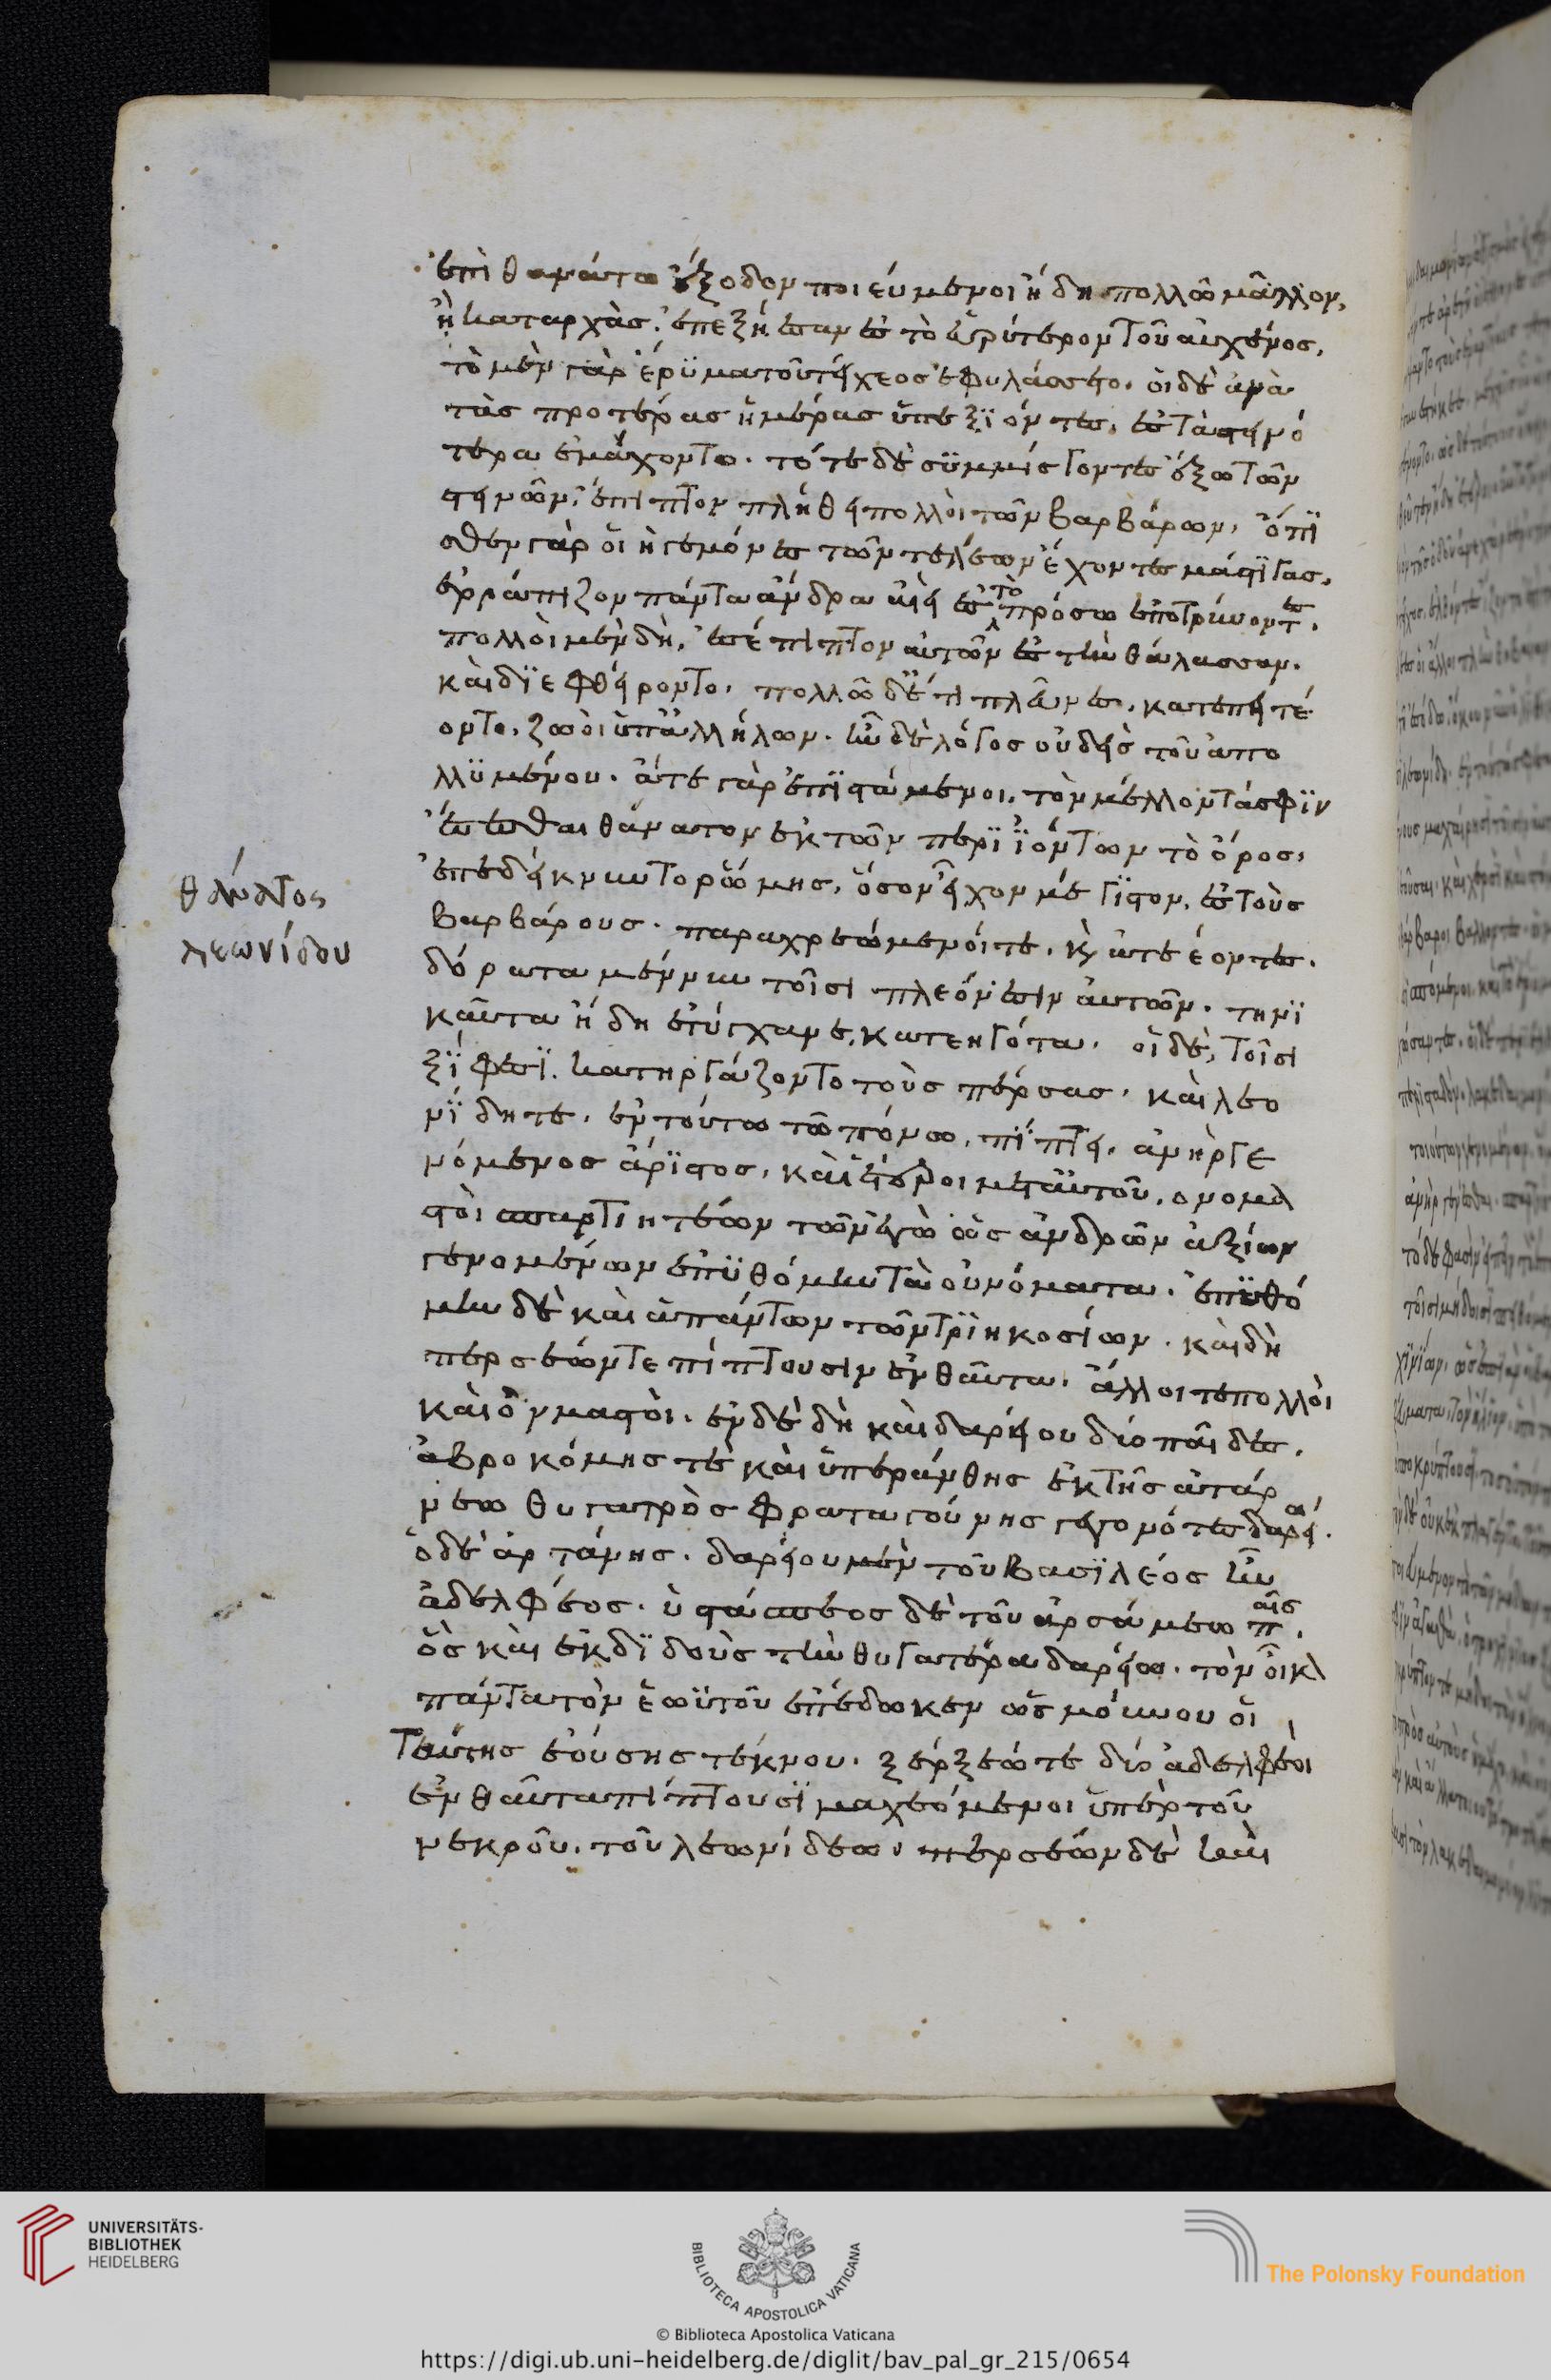 ἐπὶ θανάτω ἔξοδον ποιεύμενοι ἤδη πολλῶ μᾶλλον,
ἢ καταρχὰς, ἐπεξήεσαν ἐς τὸ εὐρύτερον τοῦ αὐχένος.
τὸ μὲν γὰρ ἔρϋμα τοῦ τείχεος ἐφυλάσσετο. οἱ δὲ ἀνὰ
τὰς προτέρας ἡμέρας ὑπεξϊόντες, ἐς τὰ στεινό
τερα ἐμάχοντο. τότε δὲ συμμίσγοντες ἔξω τῶν
στεινῶν, ἔπιπτον πλήθει πολλοὶ τῶν βαρβάρων, ὄπϊ
σθεν γὰρ οἱ ἡγεμόνες τῶν τελέων ἔχοντες μάστϊγας,
ἐρράπιζον πάντα ἄνδρα αἰεὶ ἐς τὸ πρόσω ἐποτρύνοντες.
πολλοὶ μὲν δὴ, ἐσέπιπτον αὐτῶν ἐς τὴν θάλασσαν.
καὶ δϊεφθείροντο. πολλῶ δ' ἔτι πλεῦνες, κατεπατέ
οντο, ζωοὶ ὑπ' ἀλλήλων. ἦν δὲ λόγος οὐδεὶς τοῦ ἀπο
λλϋμένου. ἅτε γὰρ ἐπϊστάμενοι, τὸν μέλλοντά σφϊν
ἔσεσθαι θάνατον ἐκ τῶν περϊϊόντων τὸ ὄρος,
ἐπεδείκνυντο ῥώμης, ὅσον εἶχον μέγϊστον, ἐς τοὺς
βαρβάρους. παραχρεώμενοί τε, κ(αὶ) ἀτέοντες.
δόρατα μέν νυν τοῖσι πλεόνεσιν αὐτῶν. τηνϊ
καῦτα ἤδη ἐτύγχανε, κατεηγότα. οἱ δὲ, τοῖσι
ξίφεσϊ. κατηργάζοντο τοὺς πέρσας. καὶ λεο
νίδης τε, ἐν τούτω τῶ πόνω, πίπτει. ἀνὴρ γε
νόμενος ἄρϊστος, καὶ ἕτεροι μετ' αὐτοῦ, ὀνομα
στοὶ σπαρτιητέων τῶν ἐγὼ ὡς ἀνδρῶν ἀξίων
γενομένων ἐπϋθόμην τὰ οὐνόματα. ἐπϋθό
μην δὲ καὶ ἁπάντων τῶν τρϊηκοσίων. καὶ δὴ
περσέων τε πίπτουσιν ἐνθαῦτα. ἄλλοι τε πολλοὶ
καὶ οὐνομαστοὶ. ἐν δὲ δὴ καὶ δαρείου δύο παῖδες.
ἀβροκόμης τὲ καὶ ὑπεράνθης ἐκ τῆς ἀτάρ
νεω θυγατρὸς φραταγούνης γεγονότες δαρεί.
ὁ δὲ ἀρτάνης. δαρείου μὲν τοῦ βασϊλέος ἦν
ἀδελφέος. ὑστάσπεος δὲ τοῦ ἀρσάμεω παῖς.
ὃς καὶ ἐκδϊδοὺς τὴν θυγατέρα δαρείω. τὸν οἶκ
πάντα τὸν ἑωϋτοῦ ἐπέδωκεν ὡς μούνου οἱ
ταύτης ἐούσης τέκνου. ξέρξεώ τε δύο ἀδελφέοι
ἐνθαῦτα πίπτουσϊ μαχεόμενοι ὑπὲρ τοῦ
νεκροῦ. τοῦ λεωνίδεω. περσέων δὲ καὶ
θάνατος
λεωνίδου
UNIVERSITÄTS-
BIBLIOTHEK
HEIDELBERG
BIBLIOTECA APOSTOLICA VATICANA
The Polonsky Foundation
© Biblioteca Apostolica Vaticana
https://digi.ub.uni-heidelberg.de/diglit/bav_pal_gr_215/0654